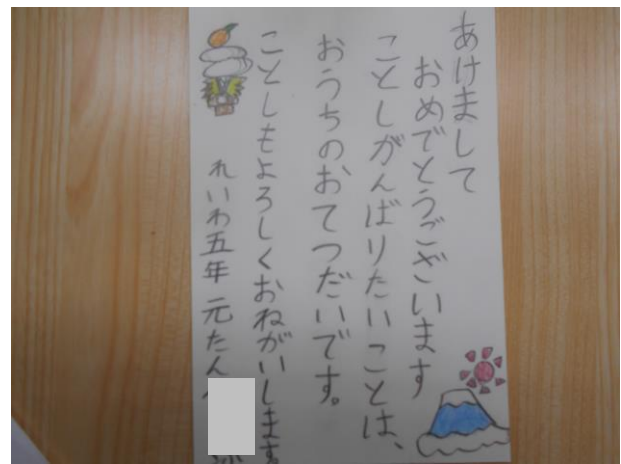 あけまして
おめでとうございます
ことしがんばりたいことは、
おうちのおてつだいです。
ことしもよろしくおねがいします。
れいわ五年 元たん